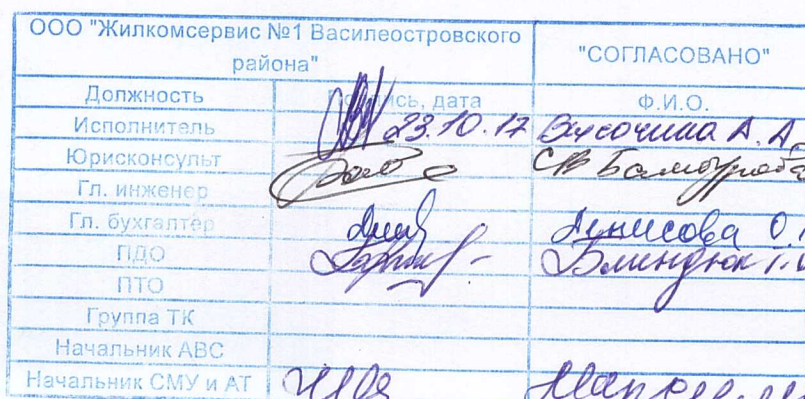 ООО "Жилкомсервис №1 Василеостровского района" "СОГЛАСОВАНО"
Должность Подпись, дата Ф.И.О.
Исполнитель 23.10.17 Височина А. А.
Юрисконсульт
Гл. инженер
Гл. бухгалтер Денисова О.
ПДО Блиндюк
ПТО
Группа ТК
Начальник АВС
Начальник СМУ и АТ